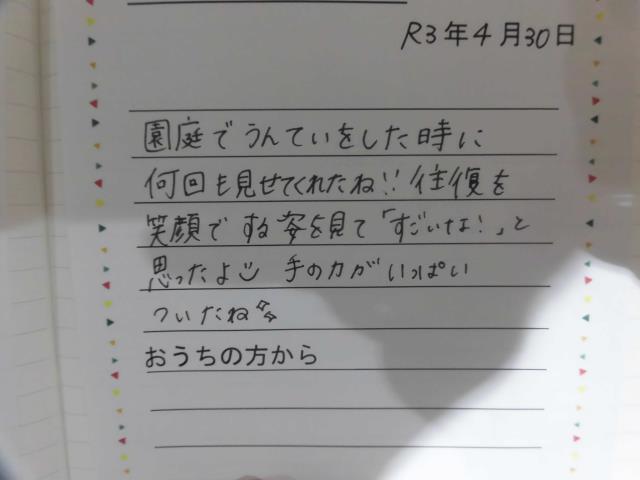 R3年4月30日
園庭でうんていをした時に
何回も見せてくれたね!!往復を
笑顔でする姿を見て「すごいな!」と
思ったよ 手の力がいっぱい
ついたね
おうちの方から